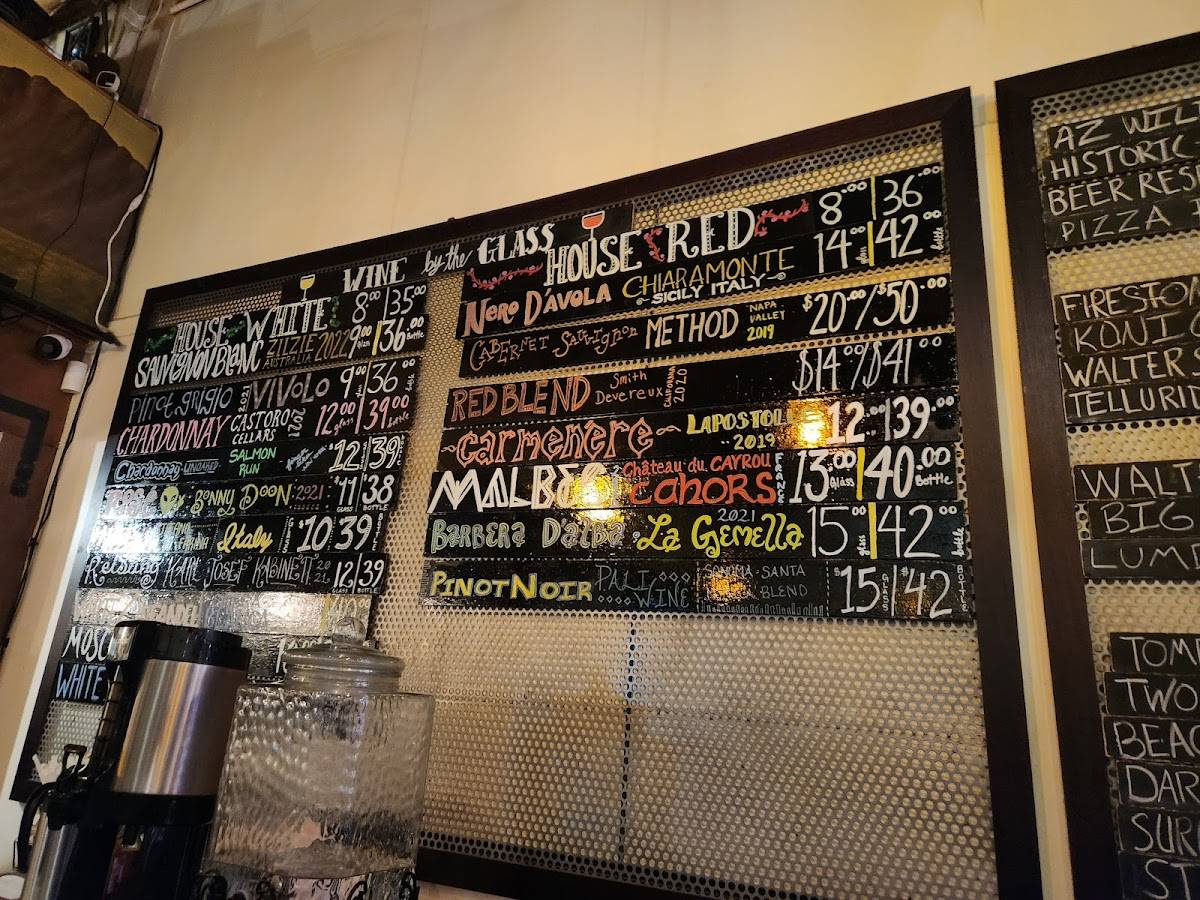 WINE by the GLASS
HOUSE WHITE 8.00 35.00
SAUVIGNON BLANC ZILZIE 2022 AUSTRALIA 9.00 Glass 36.00 Bottle
Pinot grigio 2021 VIVOLO 9.00 36.00
CHARDONNAY CASTORO CELLARS 2021 12.00 glass 39.00 bottle
Chardonnay UNOAKED SALMON RUN $12 39
ROSÉ BONNY DOON 2021 $11 GLASS 38 BOTTLE
Italy $10 GLASS 39 BOTTLE
KARL JOSEF KABINETT 2021 12 GLASS 39 BOTTLE
WHITE
HOUSE RED 8.00 36.00
NERO D'AVOLA CHIARAMONTE SICILY ITALY 14.00 glass 42.00 bottle
CABERNET SAUVIGNON METHOD NAPA VALLEY 2019 $20.00/$50.00
RED BLEND Smith Devereux CALIFORNIA 2020 $14.00/$41.00
carmenere LAPOSTOLLE 2019 12.00 39.00
MALBEC Château du CAYROU CAHORS FRANCE 13.00 Glass 40.00 Bottle
BARBERA D'ALBA La Gemella 2021 15.00 glass 42.00 bottle
PINOT NOIR PALI WINE SONOMA-SANTA BLEND $15 GLASS $42 BOTTLE
AZ WIL
HISTORIC
BEER RES
PIZZA
FIRESTO
KONI
WALTER
TELLURI
WALT
BIG
LUM
TOM
TWO
BEAC
DAR
SUR
ST